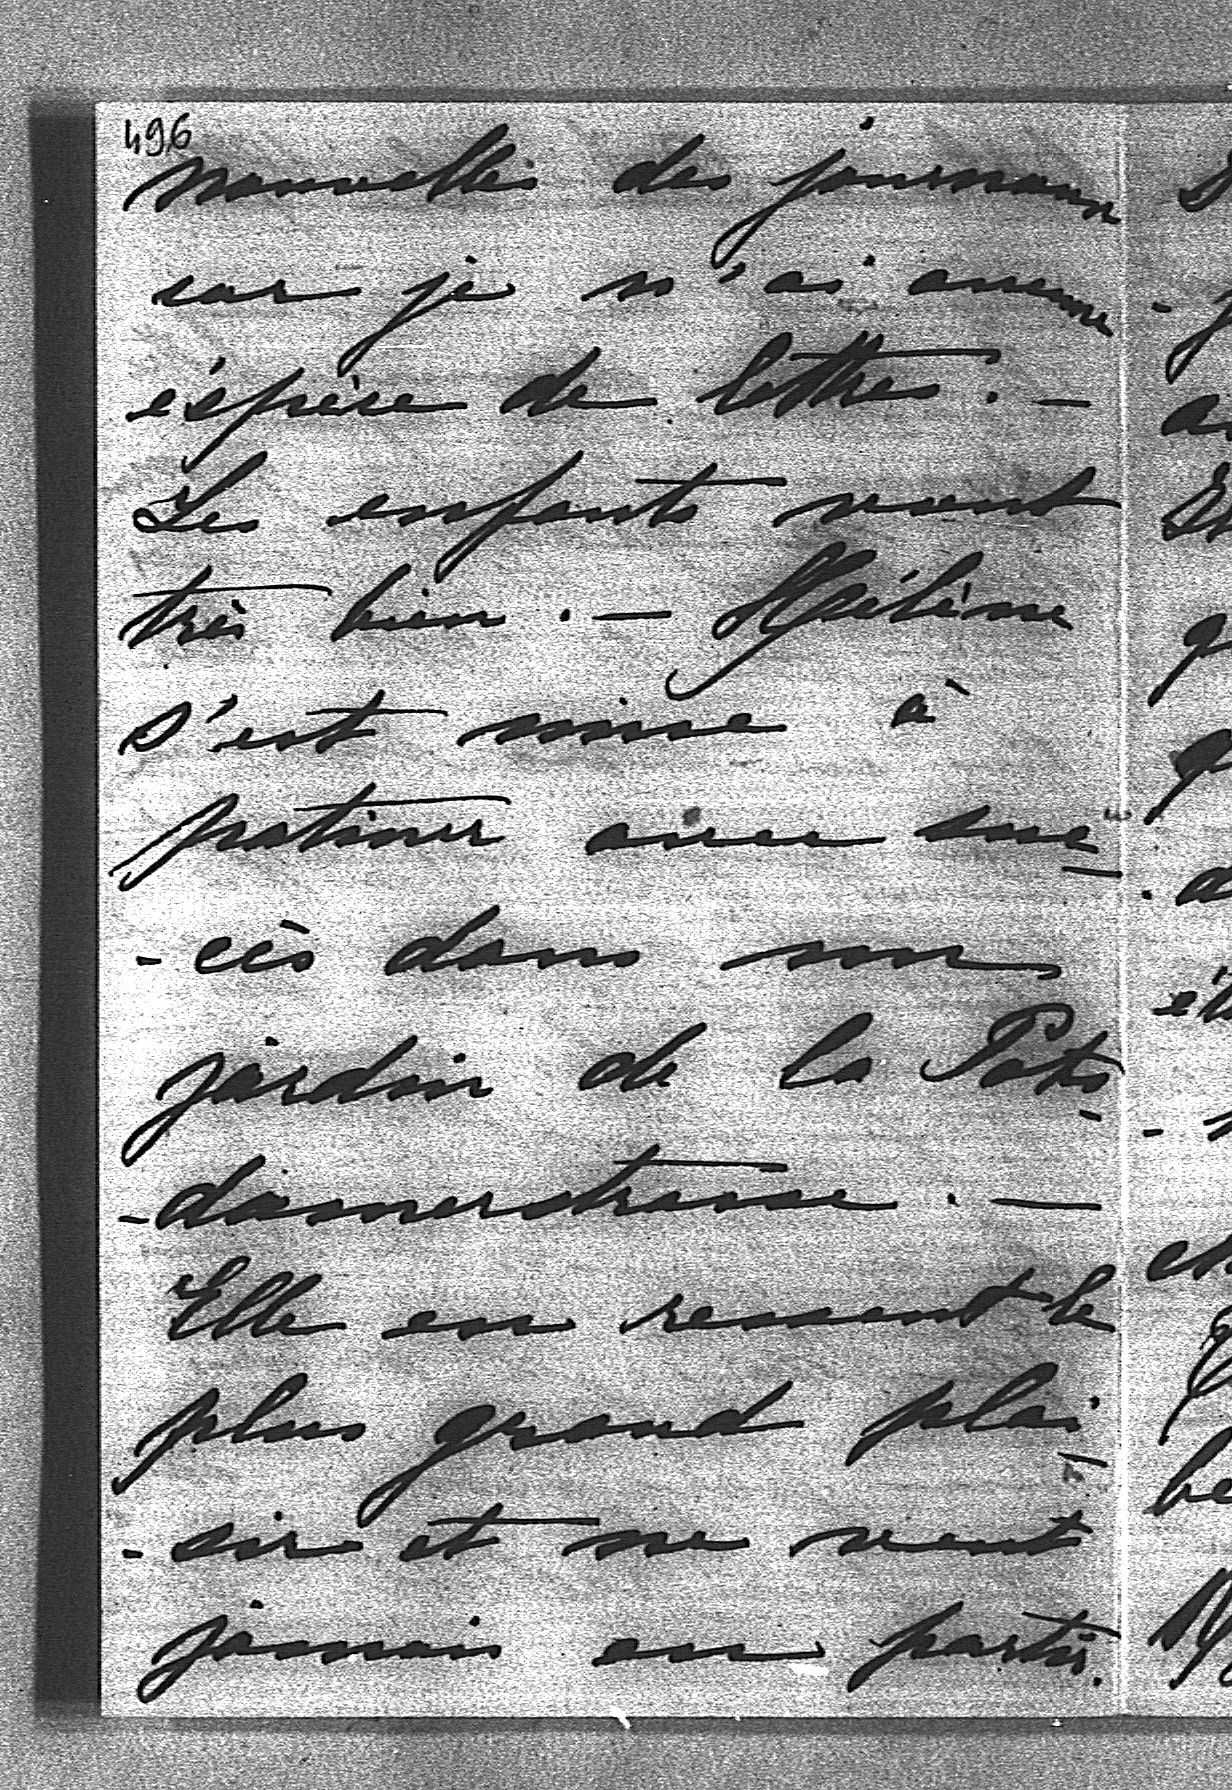 496
nouvelles des journaux
car je n'ai aucune
éspèce de lettres. —
Les enfants vont
très bien. — Hélène
s'est mise à
patiner avec suc-
-cès dans mon
jardin de la Pots-
-damerstrasse. —
Elle en ressent le
plus grand plai-
-sir et ne veut
jamais en partir.